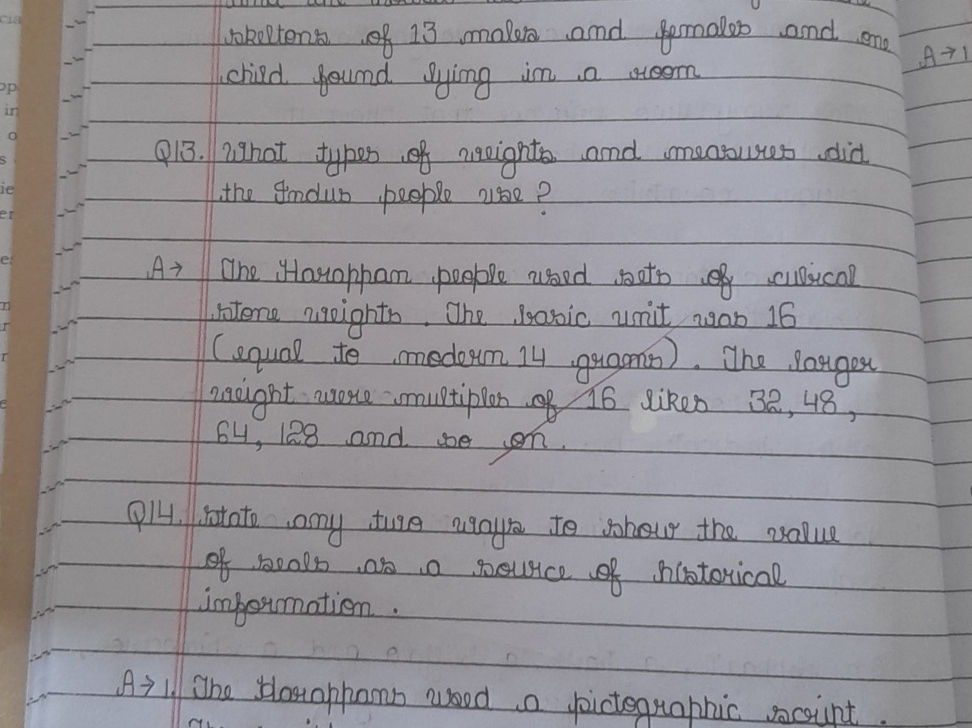 skeltons of 13 males and females and one
child found lying in a room
A→1
Q13. What types of weights and measures did
the Indus people use?
A→ The Harappan people used sets of cubical
stone weights. The basic unit was 16
(equal to modern 14 grams). The larger
weight were multiples of 16 likes 32, 48,
64, 128 and so on.
Q14. State any two ways to show the value
of seals as a source of historical
information.
A→1. The Harappans used a pictographic script.